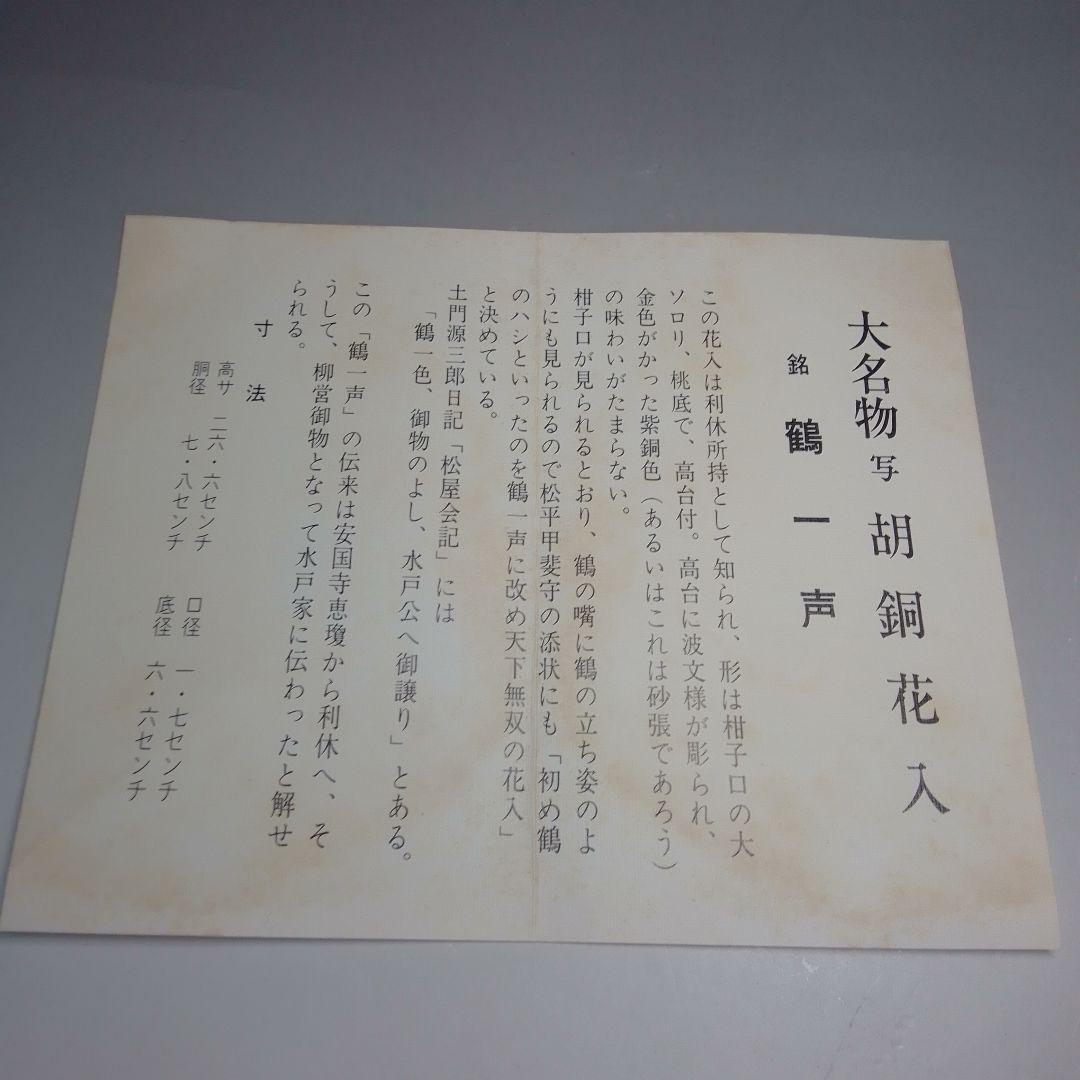 大名物写 胡銅花入
銘 鶴一声
この花入は利休所持として知られ、形は柑子口の大
ソロリ、桃底で、高台付。高台に波文様が彫られ、
金色がかった紫銅色（あるいはこれは砂張であろう）
の味わいがたまらない。
柑子口が見られるとおり、鶴の嘴に鶴の立ち姿のよ
うにも見られるので松平甲斐守の添状にも「初め鶴
のハシといったのを鶴一声に改め天下無双の花入」
と決めている。
土門源三郎日記「松屋会記」には
「鶴一色、御物のよし、水戸公へ御譲り」とある。
この「鶴一声」の伝来は安国寺恵瓊から利休へ、そ
うして、柳営御物となって水戸家に伝わったと解せ
られる。
寸法
高サ 二六・六センチ 口径 一・七センチ
胴径 七・八センチ 底径 六・六センチ